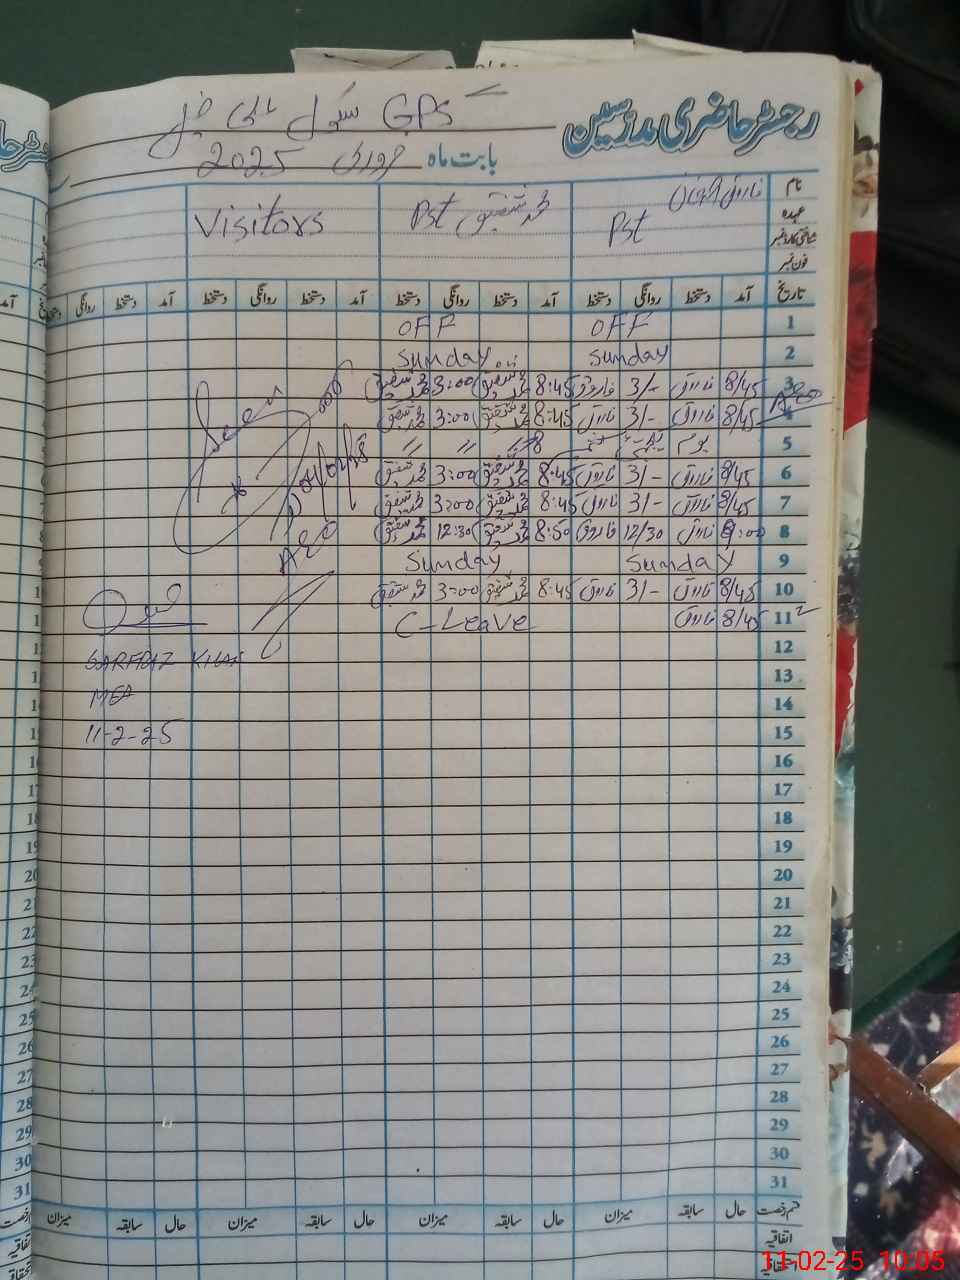 رجسٹر حاضری مدرسین
GPS سکول
بابت ماہ فروری 2025
نام
عہدہ
شناختی کارڈ نمبر
فون نمبر
Pst
محمد شفیق Pst
Visitors
تاریخ آمد دستخط روانگی دستخط آمد دستخط روانگی دستخط آمد دستخط روانگی دستخط آمد دستخط روانگی
1 OFF OFF
2 Sunday Sunday
3 8/45 فاروق 3/- فاروق 8:45 محمد شفیق 3:00 محمد شفیق
4 8/45 فاروق 3/- فاروق 8:45 محمد شفیق 3:00 محمد شفیق
5 یوم یکجہتی کشمیر
6 8/45 فاروق 3/- فاروق 8:45 محمد شفیق 3:00 محمد شفیق
7 8/45 فاروق 3/- فاروق 8:45 محمد شفیق 3:00 محمد شفیق
8 9:00 فاروق 12/30 فاروق 8:50 محمد شفیق 12:30 محمد شفیق
9 Sunday Sunday
10 8/45 فاروق 3/- فاروق 8:45 محمد شفیق 3:00 محمد شفیق
11 8/45 فاروق C-Leave
12
13
14
15
16
17
18
19
20
21
22
23
24
25
26
27
28
29
30
31
Seen
SARFRAZ KHAN
MEA
11-2-25
قسم رخصت حال سابقہ میزان حال سابقہ میزان حال سابقہ میزان حال سابقہ میزان
اتفاقیہ
استحقاقیہ
11-02-25 10:05